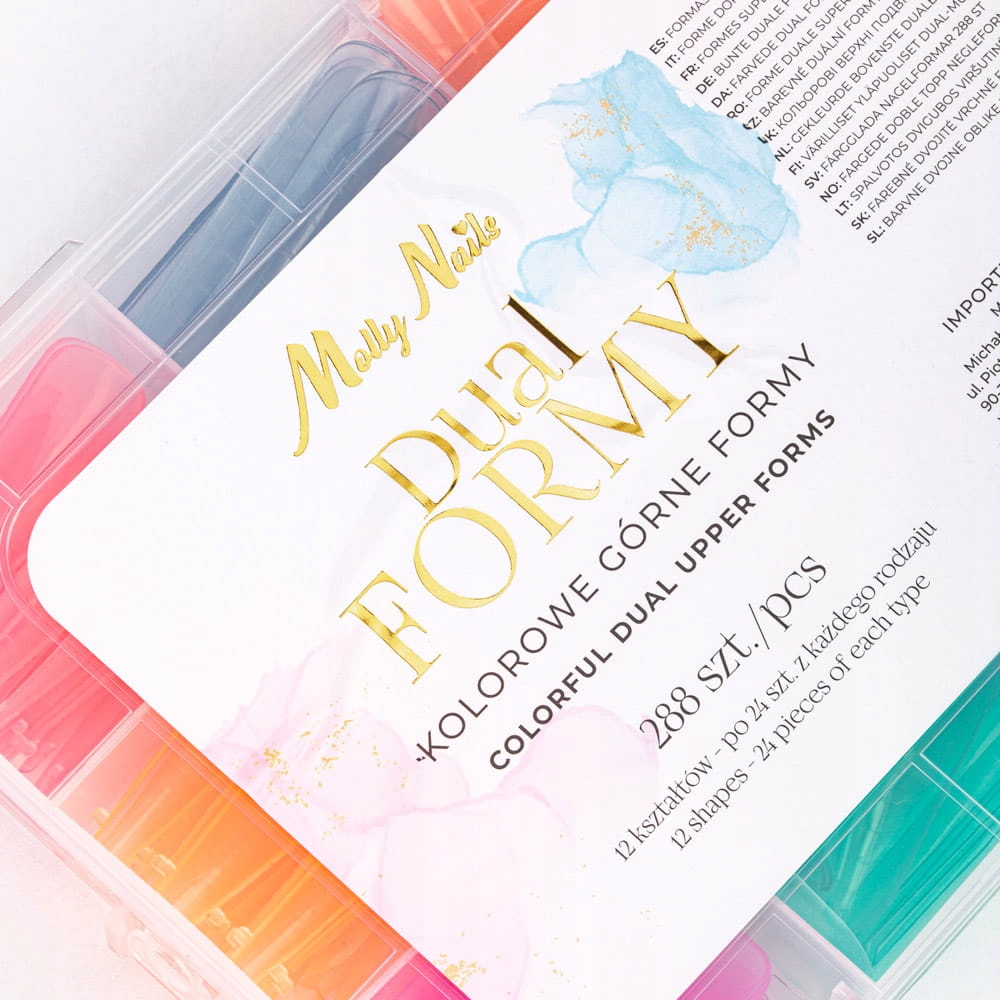 Molly Nails
Dual
FORMY
KOLOROWE GÓRNE FORMY
COLORFUL DUAL UPPER FORMS
288 szt./pcs
12 kształtów - po 24 szt. z każdego rodzaju
12 shapes - 24 pieces of each type
ES: FORMAS
IT: FORME DO
FR: FORMES SUPE
DE: BUNTE DUALE
DA: FARVEDE DUAL FO
RO: FORME DUALE SUPER
CZ: BAREVNÉ DUÁLNÍ FORM
UK: КОЛЬОРОВІ ВЕРХНІ ПОДВІ
NL: GEKLEURDE BOVENSTE DUALE
FI: VÄRILLISET YLÄPUOLISET DUAL-MU
SV: FÄRGGLADA NAGELFORMAR 288 ST
NO: FARGEDE DOBLE TOPP NEGLEFORM
LT: SPALVOTOS DVIGUBOS VIRŠUTINĖ
SK: FAREBNÉ DVOJITÉ VRCHNÉ
SL: BARVNE DVOJNE OBLIKE
IMPORT
M
Michał
ul. Piot
90-